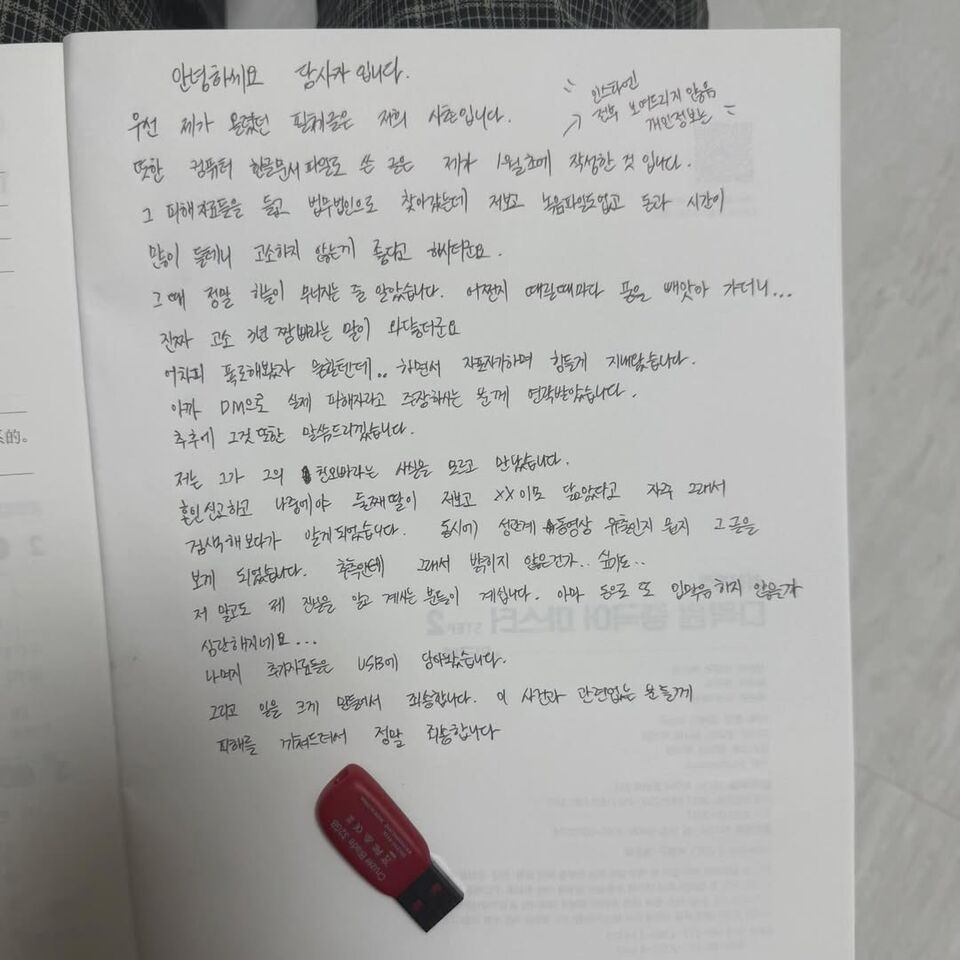 안녕하세요 당사자 입니다.
인스타엔
전부 보여드리지 않음
개인정보는
우선 제가 올렸던 필체글은 저희 사촌입니다.
또한 컴퓨터 한글문서파일로 쓴 글은 제가 1월초에 작성한 것 입니다.
그 피해자료들을 들고 법무법인으로 찾아갔는데 저보고 녹음파일도없고 돈과 시간이
많이 들테니 고소하지 않는게 좋다고 하시더군요.
그때 정말 하늘이 무너지는 줄 알았습니다. 어쩐지 때릴때마다 폰을 빼앗아 가더니...
진짜 고소 3년 짬빠라는 말이 와닿더군요
어차피 폭로해봤자 묻힐텐데.. 하면서 자포자기하며 힘들게 지내왔습니다.
아까 DM으로 실제 피해자라고 주장하시는 분께 연락받았습니다.
추후에 그것 또한 말씀드리겠습니다.
저는 그가 그의 친오빠라는 사실을 모르고 만났습니다.
혼인신고하고 나중에야 둘째딸이 저보고 XX이모 닮았다고 자주 그래서
검색해보다가 알게되었습니다. 동시에 성관계 동영상 유출인지 뭔지 그 글을
보게 되었습니다. 추측안에 그래서 밝히지 않은건가.. 싶기도..
저 말고도 제 진실을 알고 계시는 분들이 계십니다. 아마 돈으로 또 입막음하지 않을까
심란해지네요...
나머지 추가자료들은 USB에 담아놨습니다.
그리고 일을 크게 만들어서 죄송합니다. 이 사건과 관련없는 분들께
피해를 끼쳐드려서 정말 죄송합니다
Cruzer Blade 32GB
系的。
STEP 2